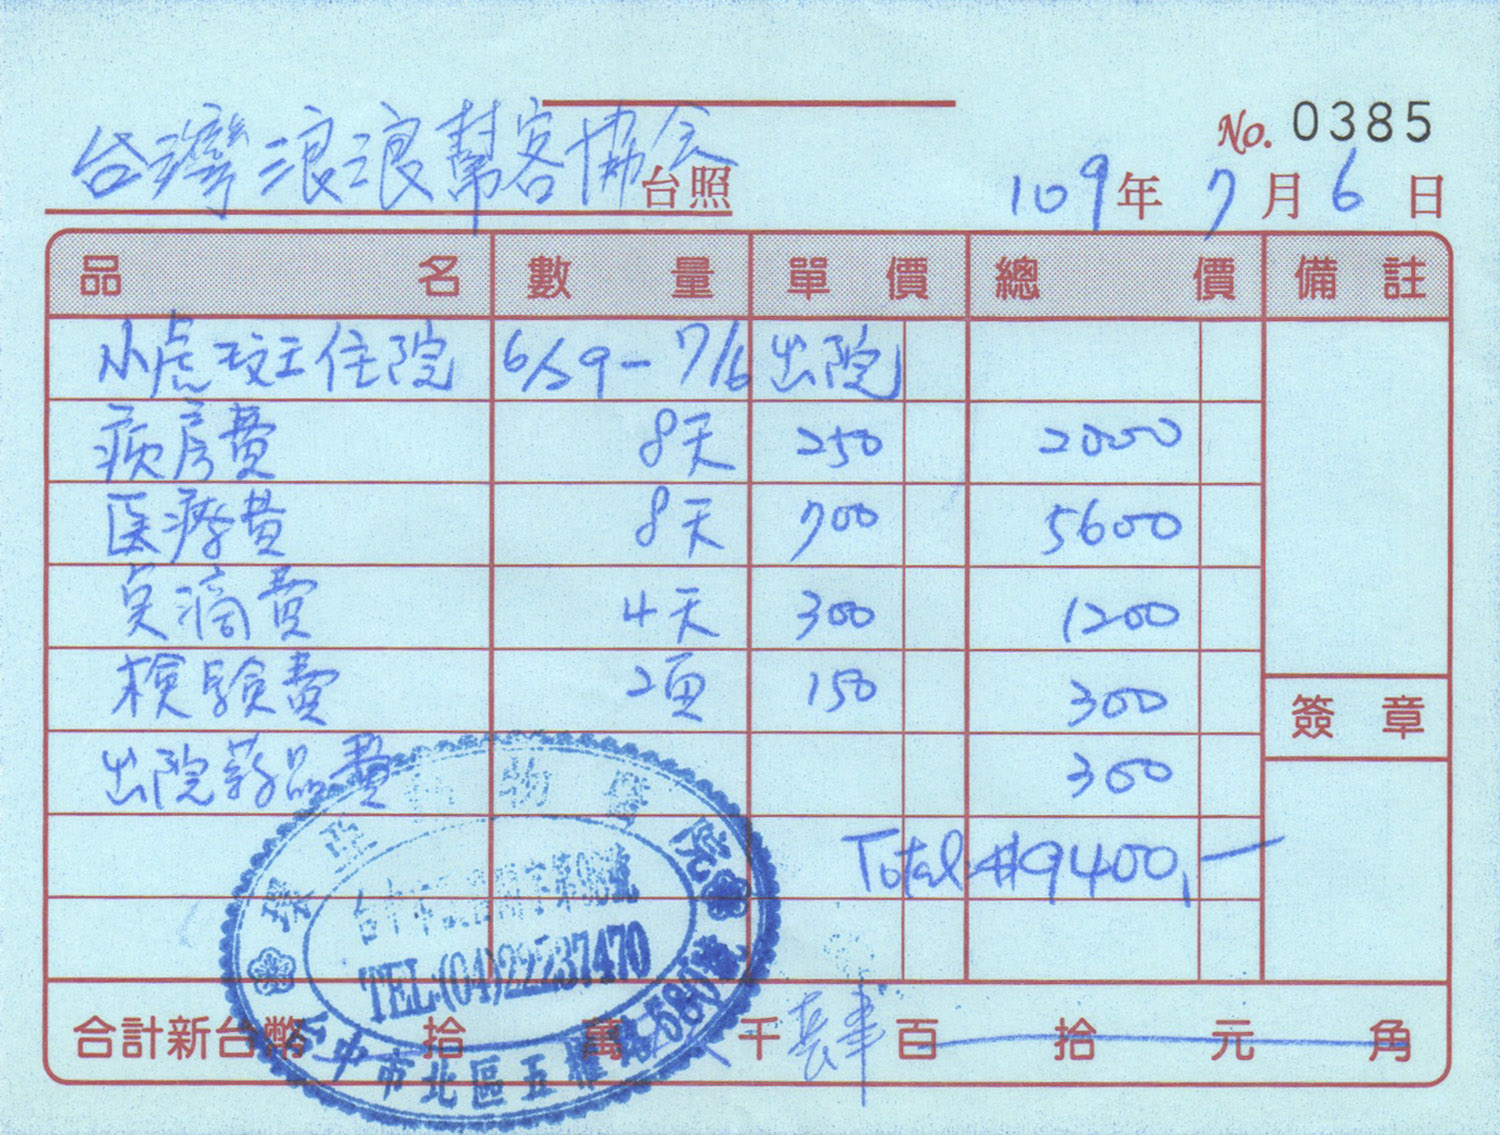 No. 0385
台灣浪浪幫客協会 台照
109年7月6日
品名 數量 單價 總價 備註
小虎斑住院 6/29-7/6 出院
病房費 8天 250 2000
医療費 8天 700 5600
点滴費 4天 300 1200
檢驗費 2項 150 300
簽章
出院葯品費 300
Total #9400,一
物醫院
TEL:(04)22237470
台中市北區五權路580號
合計新台幣 拾 萬 千 肆 百 拾 元 角